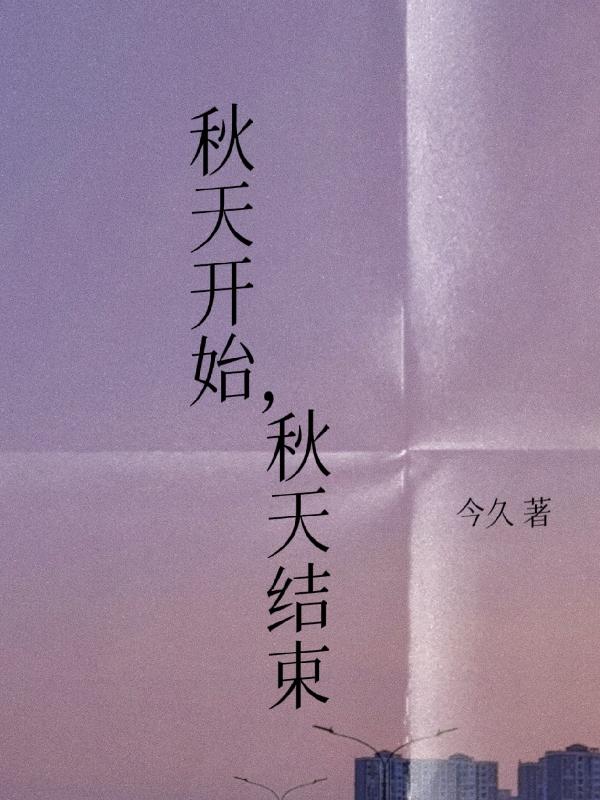 秋天开始，
秋天结束
今久 著